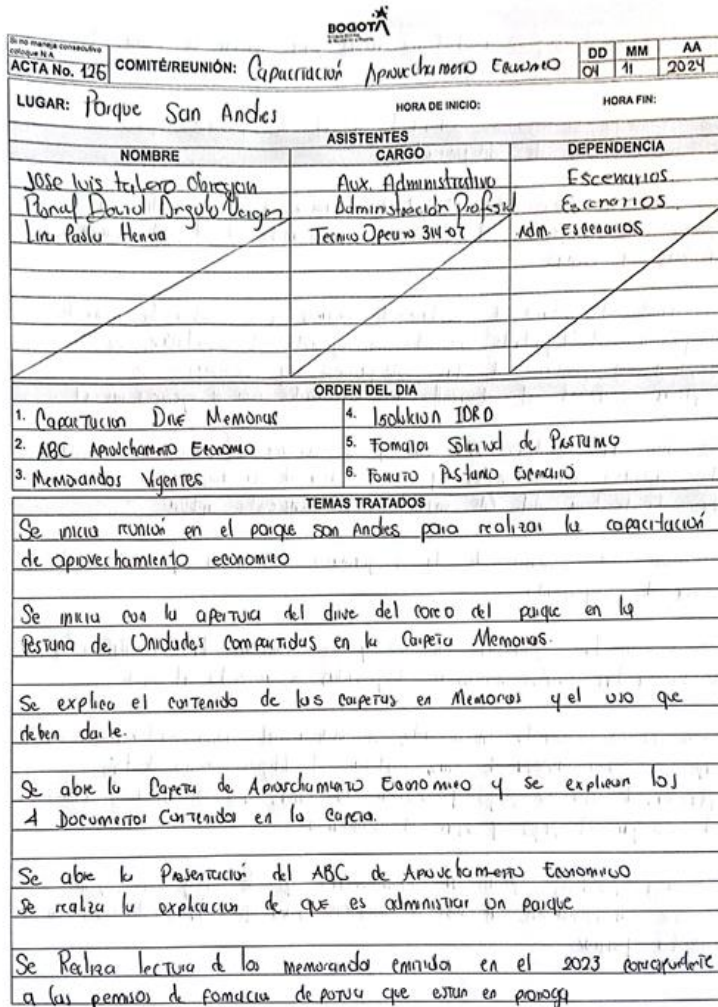 BOGOTÁ
Si no maneja consecutivo
coloque N.A.
ACTA No. 126 COMITÉ/REUNIÓN: Capacitación Aprovechamiento Economico DD MM AA
04 11 2024
LUGAR: Parque San Andres HORA DE INICIO: HORA FIN:
ASISTENTES
NOMBRE CARGO DEPENDENCIA
Jose luis talero Obregon Aux. Administrativo Escenarios
David Angulo Vargas Administración Escenarios
Lina Paola Tecnico Operativo 314-07 Adm. Escenarios
ORDEN DEL DIA
1. Capacitacion Drive Memorias 4. IDRD
2. ABC Aprovechamiento Economico 5. Formatos Solicitud de Prestamo
3. Memorandos Vigentes 6. Formato Prestamo Escenario
TEMAS TRATADOS
Se inicia reunión en el parque san Andres para realizar la capacitación
de aprovechamiento economico
Se inicia con la apertura del drive del correo del parque en la
Pestuna de Unidades compartidas en la Carpeta Memorias.
Se explica el contenido de las carpetas en Memorias y el uso que
deben darle.
Se abre la Carpeta de Aprovechamiento Económico y se explican los
4 Documentos Contenidos en la Carpeta.
Se abre la Presentación del ABC de Aprovechamiento Economico
Se realiza la explicacion de que es administrar un parque
Se Realiza lectura de los memorandos emitidos en el 2023 correspondiente
a los permisos de que estan en prorroga